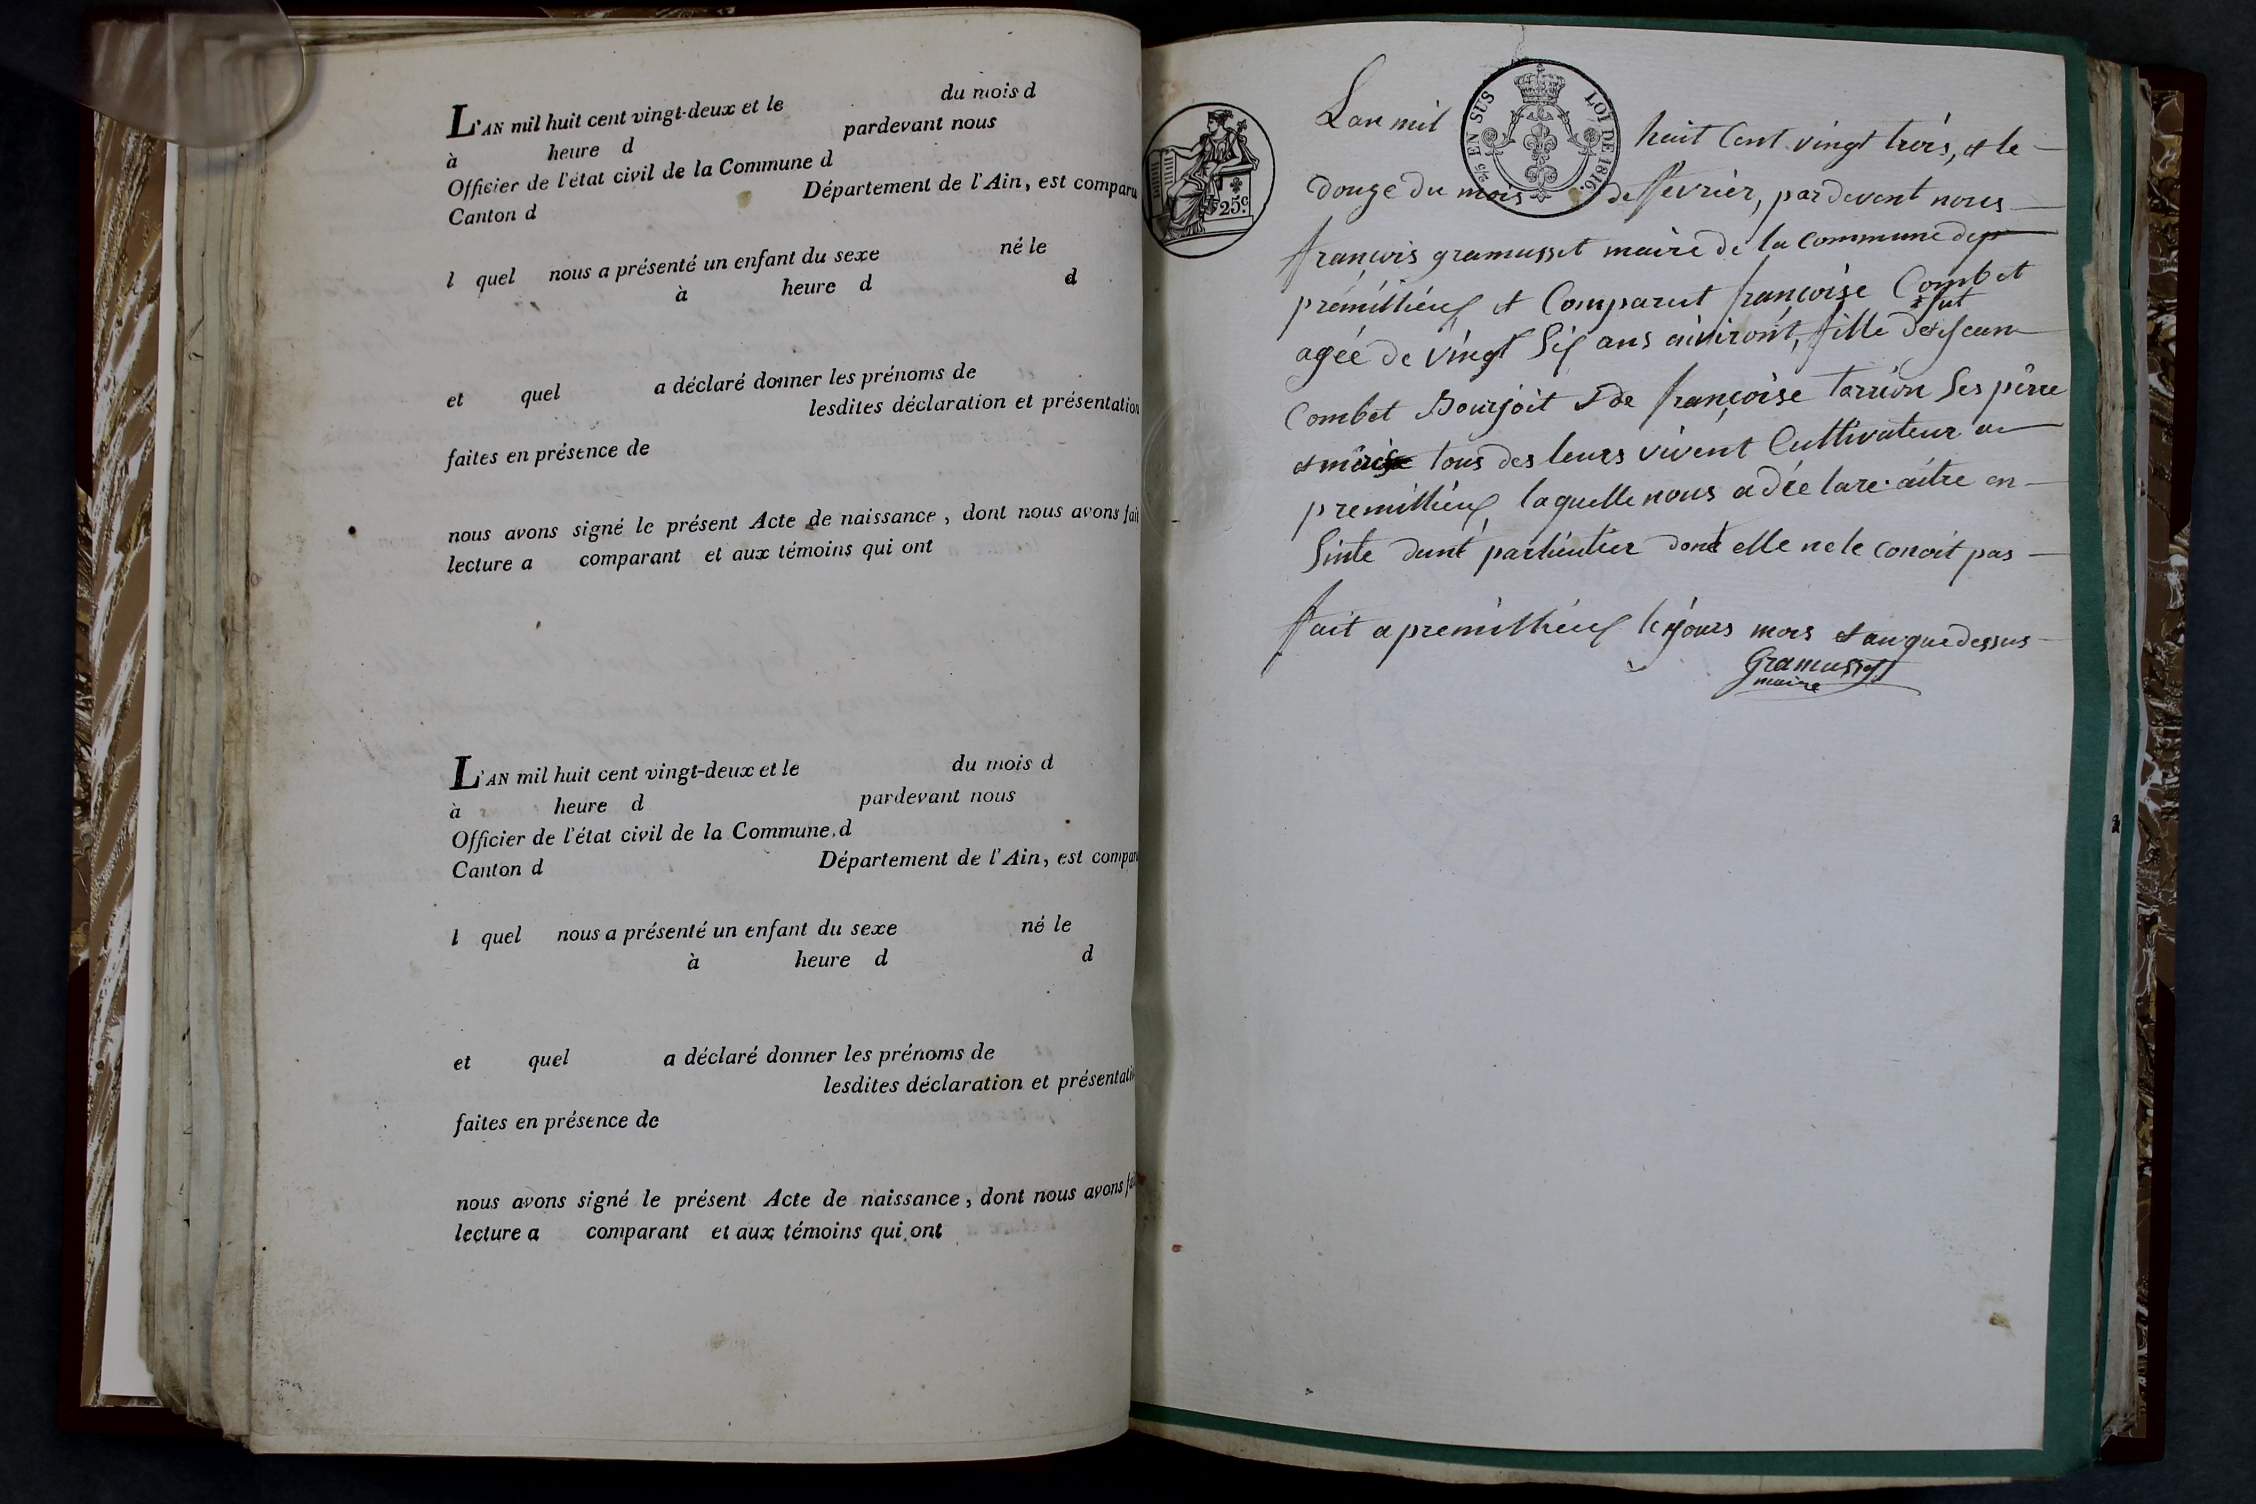 L'AN mil huit cent vingt-deux et le du mois d
à heure d pardevant nous
Officier de l'état civil de la Commune d
Canton d Département de l'Ain, est comparu
l quel nous a présenté un enfant du sexe né le
à heure d d
et quel a déclaré donner les prénoms de
lesdites déclaration et présentation
faites en présence de
nous avons signé le présent Acte de naissance, dont nous avons fait
lecture a comparant et aux témoins qui ont
L'AN mil huit cent vingt-deux et le du mois d
à heure d pardevant nous
Officier de l'état civil de la Commune d
Canton d Département de l'Ain, est compar
l quel nous a présenté un enfant du sexe né le
à heure d d
et quel a déclaré donner les prénoms de
lesdites déclaration et présentati
faites en présence de
nous avons signé le présent Acte de naissance, dont nous avons fai
lecture a comparant et aux témoins qui ont
25c.
EN SUS LOI DE 1816.
Lan mil huit Cent vingt trois, et le
douze du mois de fevrier, pardevent nous
françois gramusset maire de la commune de
prémillieux et Comparut françoise Combet
agée de vingt Six ans aiviront, fille de fut Jean
Combet Bourjoit et de françoise tarrion Ses pêrre
et mère tous des leurs vivent Cultivateur a
premillieux laquelle nous a déclare aitre en
Sinte dunt particulier dont elle ne le conoit pas
fait a premillieux le jours mois et an que dessus
Gramusset
maire